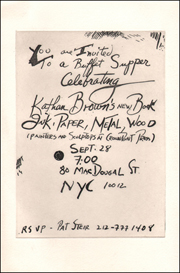 You are Invited
To a Buffet Supper
Celebrating
Kathan Brown's new Book
Ink, Paper, Metal, Wood
(Painters and Sculptors at Crown Point Press)
Sept. 28
7:00
80 MacDougal St
NYC 10012
RSVP - Pat Steir 212-777 1408